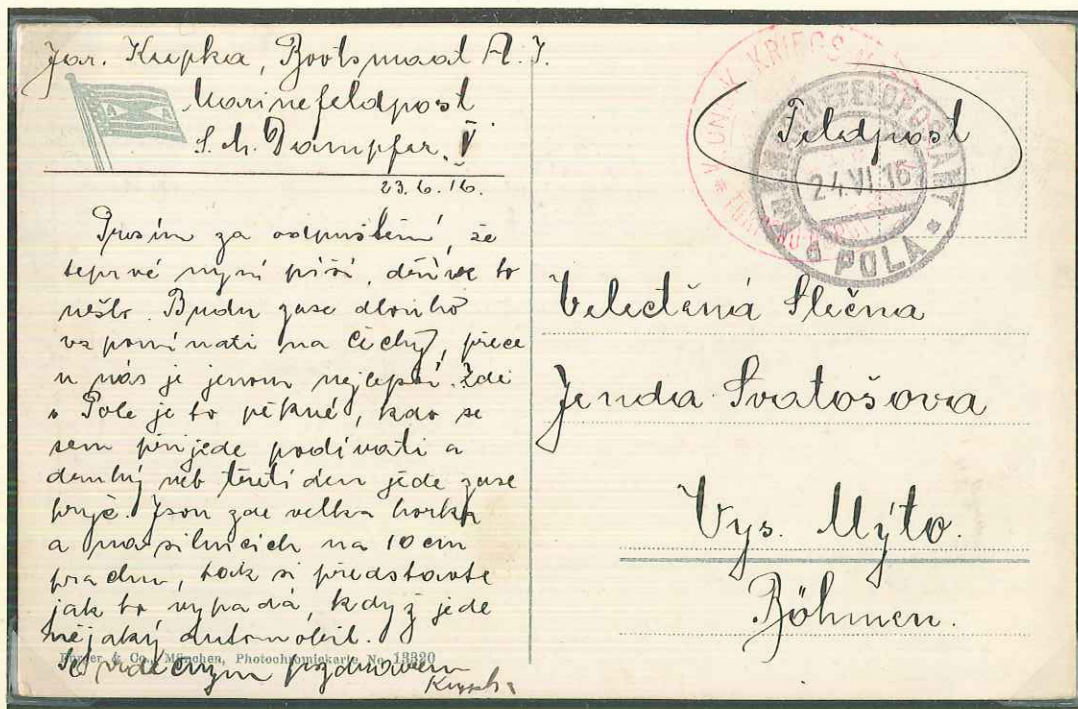 Jar. Kupka, Bootsmaat A. I.
Marinefeldpost
S. M. Dampfer V
23. 6. 16.
Prosím za odpuštění, že
teprvé nyní píši, dříve to
nešlo. Budu zase dlouho
vzpomínati na Čechy, přece
u nás je jenom nejlepší. Zde
v Pole je to pěkné, kdo se
sem přijede podívati a
druhý neb třetí den jede zase
pryč. Json zde velka horka
a na silnicích na 10 cm
prachu, tak si představte
jak to vypadá, když jede
nějaký automóbil.
Se srdečným pozdravem
Kupka
Burger & Co., München, Photochromiekarte No 13320
Feldpost
K.U.K. MARINEFELDPOSTAMT
24. VI. 16
POLA
UND K. KRIEGS
Velectěná Slečna
Jenda Svatošova
Vys. Mýto.
Böhmen.